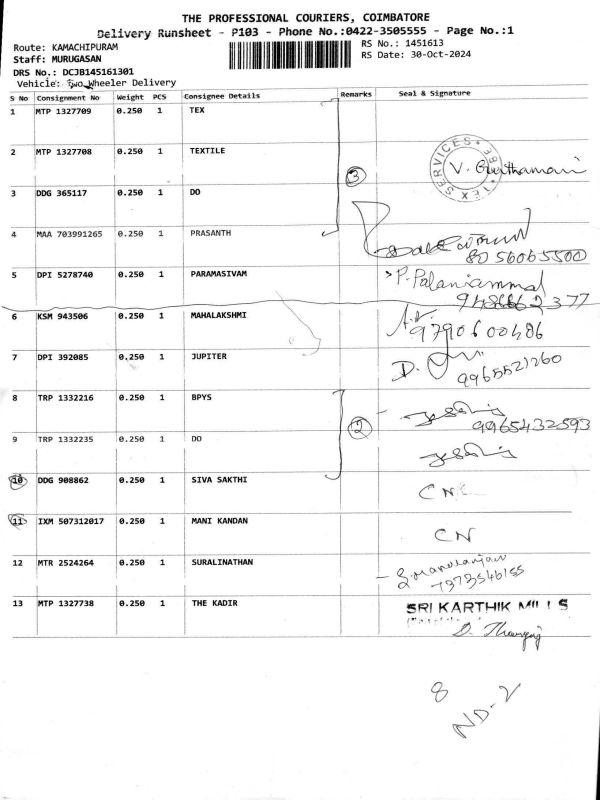 THE PROFESSIONAL COURIERS, COIMBATORE
Delivery Runsheet - P103 - Phone No.:0422-3505555 - Page No.:1
Route: KAMACHIPURAM RS No.: 1451613
Staff: MURUGASAN RS Date: 30-Oct-2024
DRS No.: DCJB145161301
Vehicle: Two Wheeler Delivery
S No Consignment No Weight PCS Consignee Details Remarks Seal & Signature
1 MTP 1327709 0.250 1 TEX
2 MTP 1327708 0.250 1 TEXTILE
3 TEX SERVICES
3 DDG 365117 0.250 1 DO
4 MAA 703991265 0.250 1 PRASANTH
8056065500
5 DPI 5278740 0.250 1 PARAMASIVAM P. Palaniammal
6 KSM 943506 0.250 1 MAHALAKSHMI
9790600486
7 DPI 392085 0.250 1 JUPITER D.
9965521260
8 TRP 1332216 0.250 1 BPYS
2 9965432593
9 TRP 1332235 0.250 1 DO
10 DDG 908862 0.250 1 SIVA SAKTHI CN
11 IXM 507312017 0.250 1 MANI KANDAN CN
12 MTR 2524264 0.250 1 SURALINATHAN
7373546155
13 MTP 1327738 0.250 1 THE KADIR SRI KARTHIK MILLS
8
ND-2